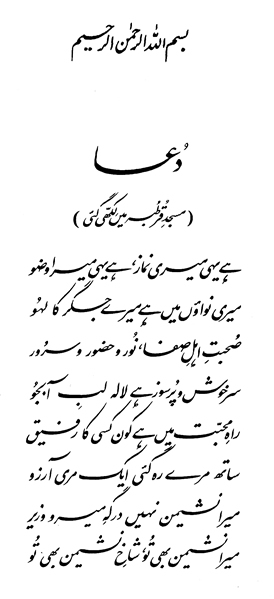 بسم اللہ الرحمٰن الرحیم
دُعا
(مسجدِ قرطبہ میں لکھی گئی)
ہے یہی میری نماز، ہے یہی میرا وضو
میری نواؤں میں ہے میرے جگر کا لہو
صحبتِ اہلِ صفا، نُور و حضور و سرور
سرخوش و پُرسوز ہے لالہ لبِ آبجو
راہِ محبت میں ہے کون کسی کا رفیق
ساتھ مرے رہ گئی ایک مری آرزو
میرا نشیمن نہیں درگہِ میر و وزیر
میرا نشیمن بھی تُو، شاخِ نشیمن بھی تُو